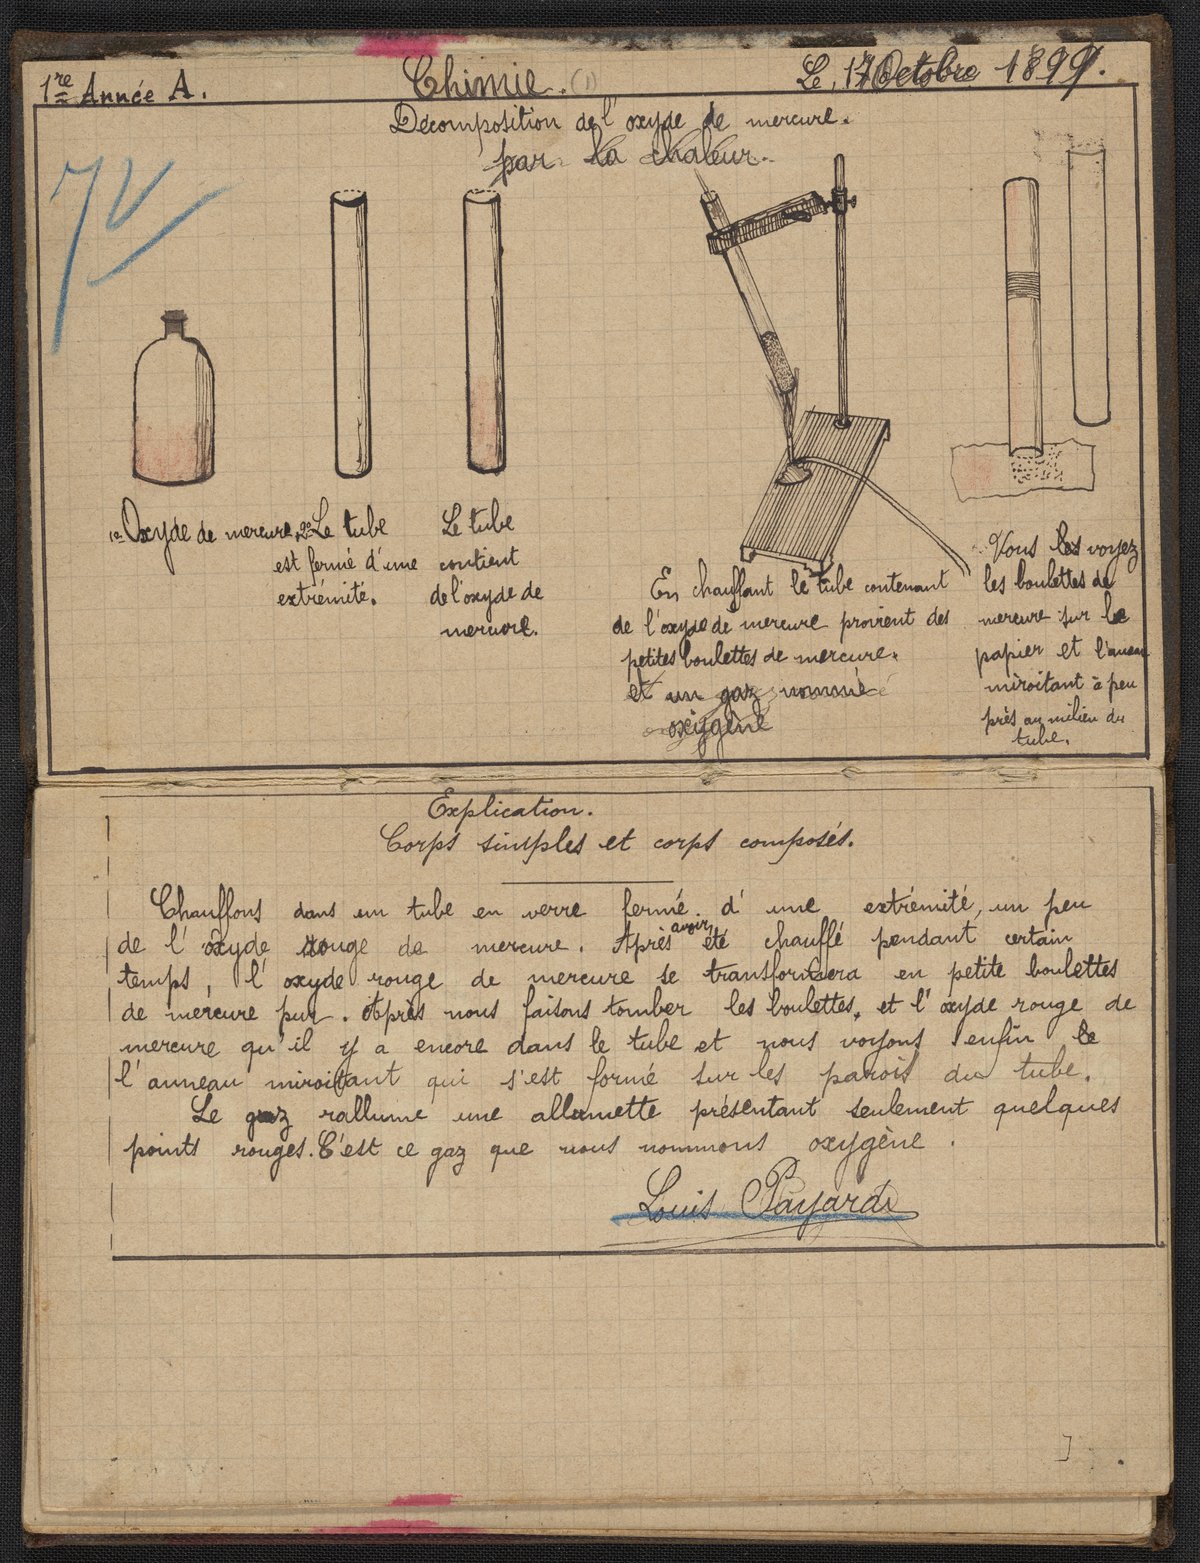 1re Année A.
Chimie. (1)
Le, 17 Octobre 1899.
Décomposition de l'oxyde de mercure.
par la chaleur.
1o Oxyde de mercure.
2o Le tube
est fermé d'une
extrémité.
Le tube
contient
de l'oxyde de
mercure.
En chauffant le tube contenant
de l'oxyde de mercure provient des
petites boulettes de mercure.
et un gaz nommé
oxigène
Vous les voyez
les boulettes de
mercure sur le
papier et l'anneau
miroitant à peu
près au milieu du
tube.
Explication.
Corps simples et corps composés.
Chauffons dans un tube en verre fermé d'une extrémité, un peu
de l'oxyde rouge de mercure. Après avoir été chauffé pendant certain
temps, l'oxyde rouge de mercure se transformera en petite boulettes
de mercure pur. Après nous faisons tomber les boulettes, et l'oxyde rouge de
mercure qu'il y a encore dans le tube et nous voyons enfin le
l'anneau miroitant qui s'est formé sur les parois du tube.
Le gaz rallume une allumette présentant seulement quelques
points rouges. C'est ce gaz que nous nommons oxygène.
Louis Payard